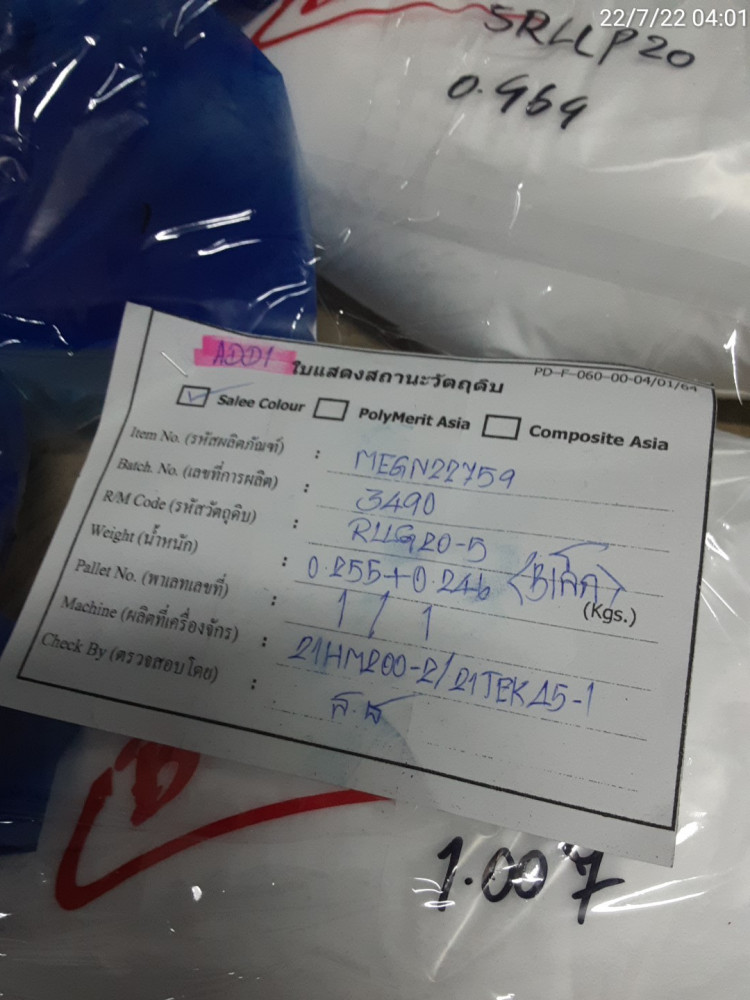 22/7/22 04:01
SRLLP20
0.969
ADD1
ใบแสดงสถานะวัตถุดิบ
PD-F-060-00-04/01/64
Salee Colour PolyMerit Asia Composite Asia
Item No. (รหัสผลิตภัณฑ์) : MEGN22759
Batch. No. (เลขที่การผลิต) : 3490
R/M Code (รหัสวัตถุดิบ) : RLLG20-5
Weight (น้ำหนัก) : 0.255+0.246 (Kgs.)
Pallet No. (พาเลทเลขที่) : 1 / 1
Machine (ผลิตที่เครื่องจักร) : 21HM200-2/21TEK45-1
Check By (ตรวจสอบโดย) :
1.007